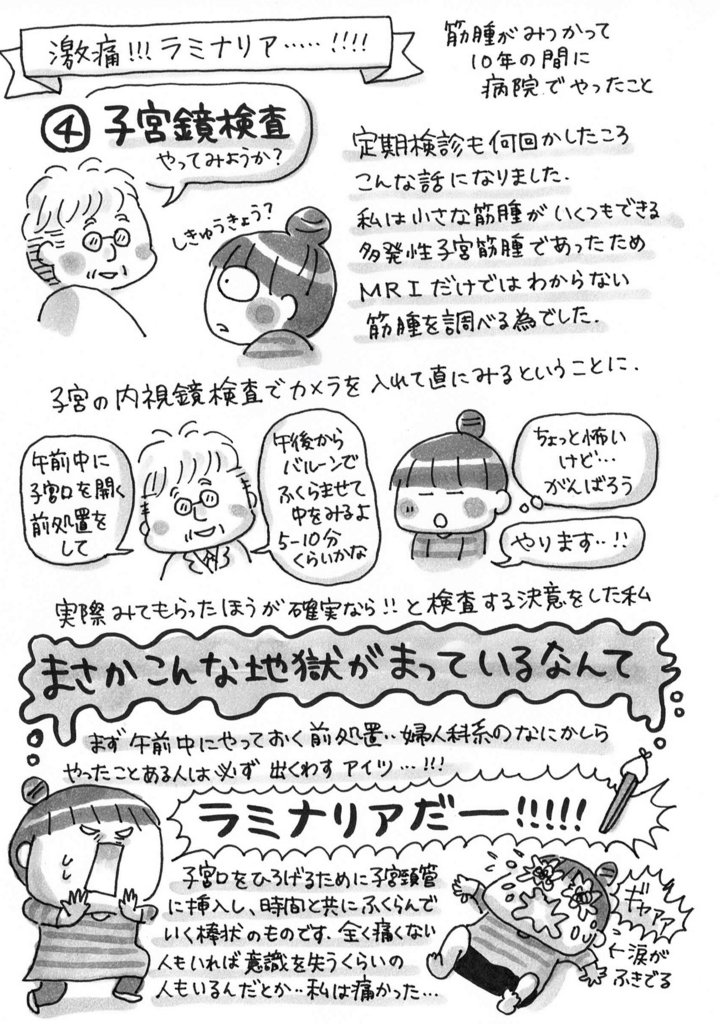 激痛!!!ラミナリア‥‥‥!!!!
筋腫がみつかって
10年の間に
病院でやったこと
④子宮鏡検査
やってみようか?
しきゅうきょう?
定期検診も何回かしたころ
こんな話になりました.
私は小さな筋腫がいくつもできる
多発性子宮筋腫であったため
MRIだけではわからない
筋腫を調べる為でした.
子宮の内視鏡検査でカメラを入れて直にみるということに.
午前中に
子宮口を開く
前処置を
して
午後から
バルーンで
ふくらませて
中をみるよ
5-10分
くらいかな
ちょっと怖い
けど…
がんばろう
やります‥!!
実際みてもらったほうが確実なら!!と検査する決意をした私
まさかこんな地獄がまっているなんて
まず午前中にやっておく前処置‥婦人科系のなにかしら
やったことある人は必ず出くわすアイツ…!!!
ラミナリアだー!!!!!
子宮口をひろげるために子宮頸管
に挿入し、時間と共にふくらんで
いく棒状のものです.全く痛くない
人もいれば意識を失うくらいの
人もいるんだとか‥私は痛かった…
ひぃ
ギャアア
←涙が
ふきでる